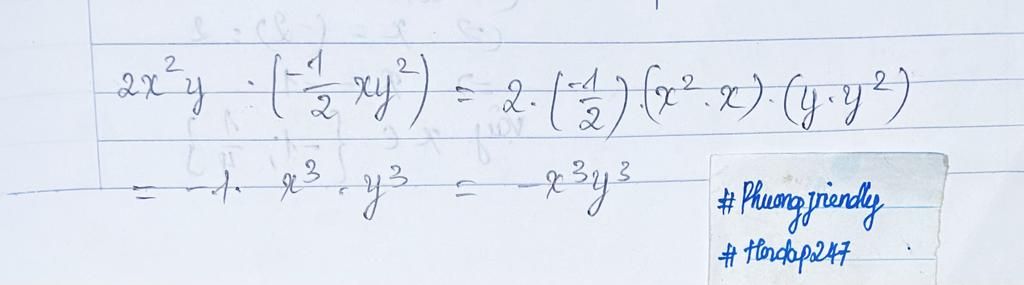 2x²y · (-1/2 xy²) = 2 · (-1/2) · (x² · x) · (y · y²)
= -1 · x³ · y³ = -x³y³
# Phuongfriendly
# Hoidap247